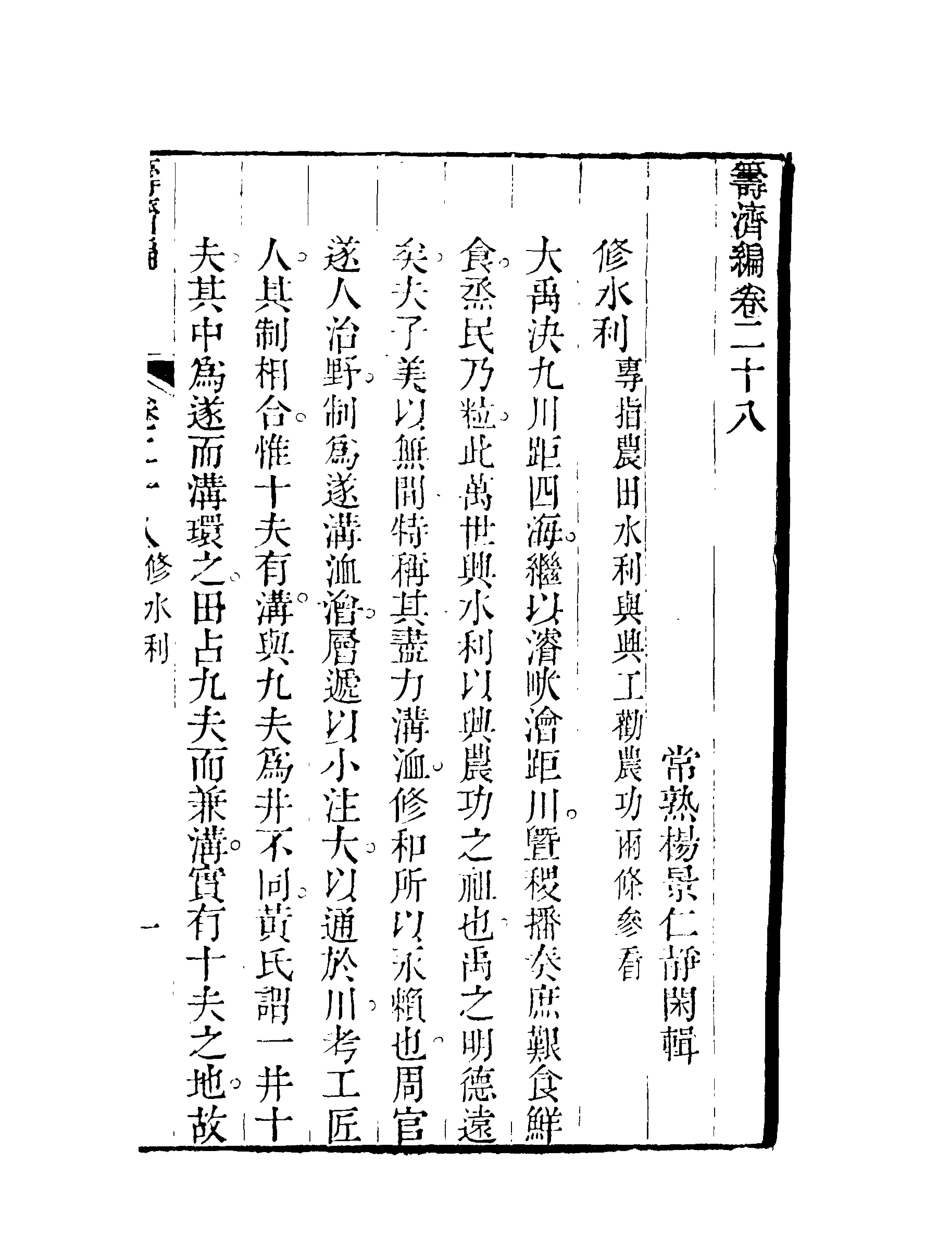 籌濟編卷二十八
常熟楊景仁靜閑輯
修水利專指農田水利與興工勸農功兩條參看
大禹決九川距四海。繼以濬畎澮距川。暨稷播奏庶艱食鮮
食。烝民乃粒。此萬世興水利以興農功之祖也。禹之明德遠
矣。夫子美以無間。特稱其盡力溝洫。修和所以永賴也。周官
遂人治野。制爲遂溝洫澮。層遞以小注大。以通於川。考工匠
人。其制相合。惟十夫有溝。與九夫爲井不同。黃氏謂一井十
夫。其中爲遂而溝環之。田占九夫而兼溝。實有十夫之地。故
籌濟編
卷二十八 修水利
一